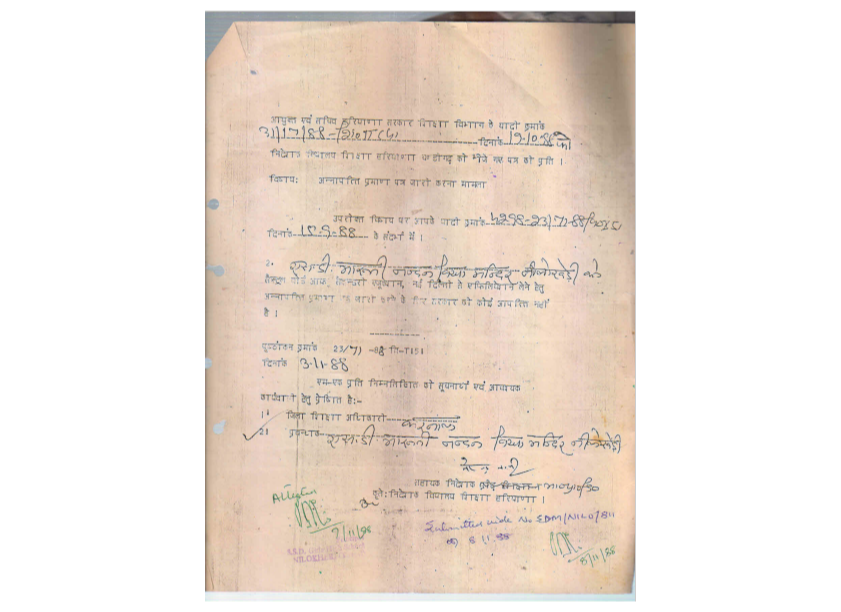 आयुक्त एवं सचिव हरियाणा सरकार शिक्षा विभाग के यादी क्रमांक
31/17/88- दिनांक 19-10-88 को
निदेशक विद्यालय शिक्षा हरियाणा चण्डीगढ़ को भेजे गए पत्र की प्रति ।
विषय: अनापत्ति प्रमाण पत्र जारी करना मामला
उपरोक्त विषय पर आपके यादी क्रमांक
दिनांक 15-9-88 के संदर्भ में ।
2. एस.डी. मारूती नन्दन विद्या मन्दिर नीलोखेड़ी को
सैन्ट्रल बोर्ड आफ सैकण्डरी एजुकेशन, नई दिल्ली से एफिलिएशन लेने हेतु
अनापत्ति प्रमाण पत्र जारी करने के लिए सरकार को कोई आपत्ति नहीं
है ।
पृष्ठांकन क्रमांक 23/71 -88
दिनांक 3-11-88
एक-एक प्रति निम्नलिखित को सूचनार्थ एवं आवश्यक
कार्यवाही हेतु प्रेषित है:-
1. जिला शिक्षा अधिकारी करनाल
2. प्रबन्धक एस.डी. मारूती नन्दन विद्या मन्दिर नीलोखेड़ी
सहायक निदेशक
कृते: निदेशक विद्यालय शिक्षा हरियाणा ।
Attested
9/11/88
Submitted vide No SDM/NILO/811
8/11/88
NILOKHERI
8/11/88